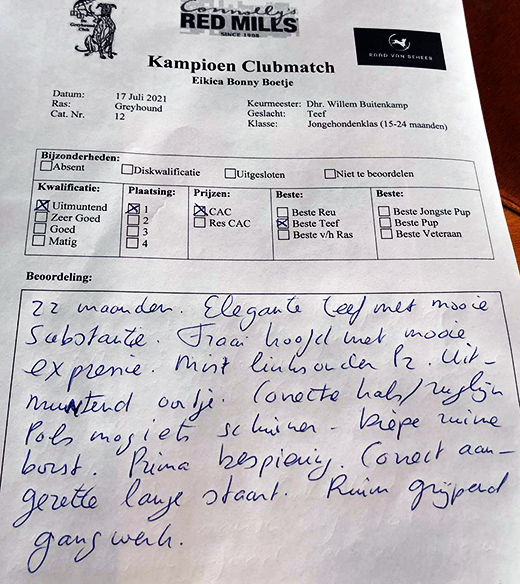 Greyhound
Club
Connolly's
RED MILLS
SINCE 1908
RAAD VAN BEHEER
Kampioen Clubmatch
Eikica Bonny Boetje
Datum: 17 Juli 2021 Keurmeester: Dhr. Willem Buitenkamp
Ras: Greyhound Geslacht: Teef
Cat. Nr. 12 Klasse: Jongehondenklas (15-24 maanden)
Bijzonderheden:
Absent Diskwalificatie Uitgesloten Niet te beoordelen
Kwalificatie: Plaatsing: Prijzen: Beste: Beste:
Uitmuntend 1 CAC Beste Reu Beste Jongste Pup
Zeer Goed 2 Res CAC Beste Teef Beste Pup
Goed 3 Beste v/h Ras Beste Veteraan
Matig 4
Beoordeling:
22 maanden. Elegante teef met mooie
Substantie. Fraai hoofd met mooie
expressie. Mist linksonder P2. Uit-
muntend oortje. Correcte hals/ruglijn
Pols mag iets schuiner - Diepe ruime
borst. Prima bespiering. Correct aan-
gezette lange staart. Ruim grijpend
gangwerk.